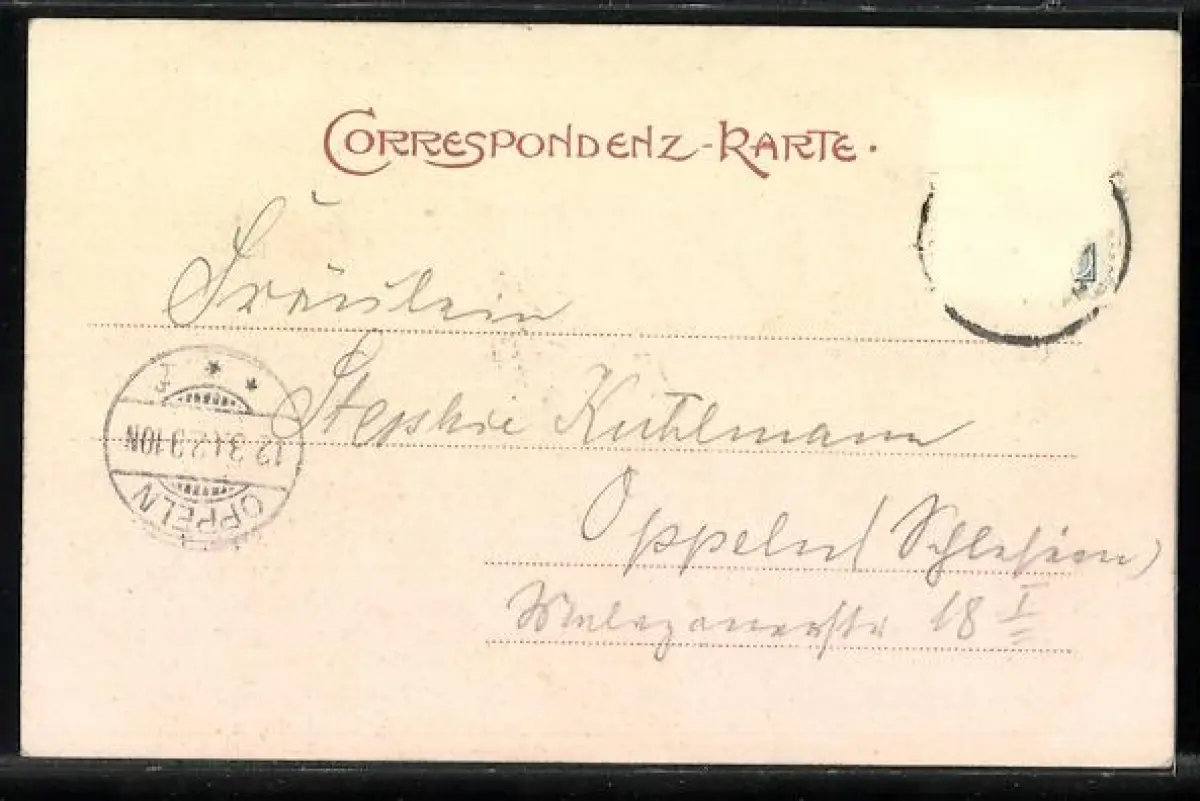 CORRESPONDENZ-KARTE.
Fräulein
Stephie Kuhlmann
Oppeln (Schlesien)
18 I
OPPELN